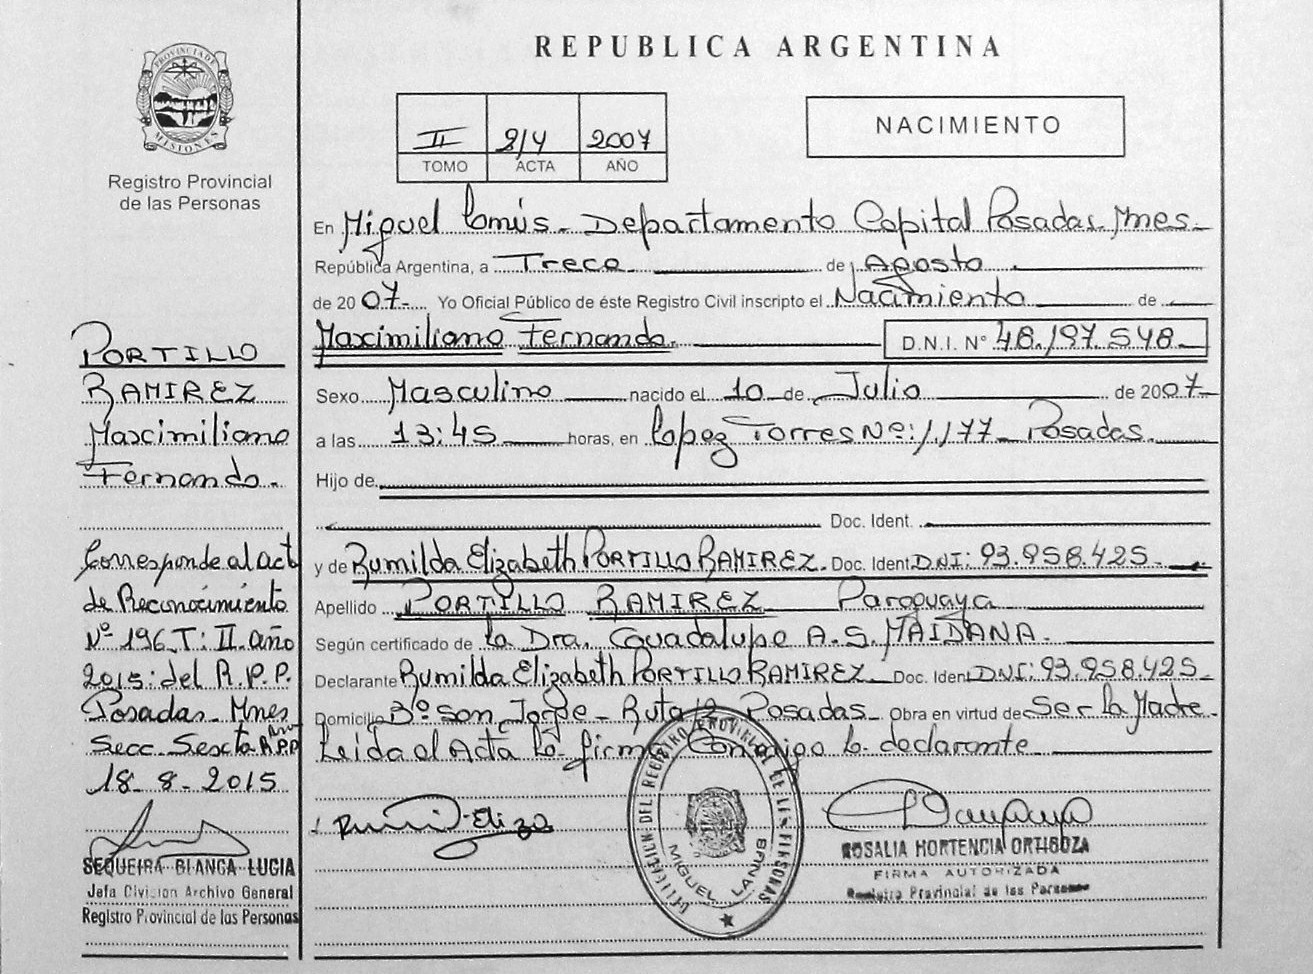 REPUBLICA ARGENTINA
PROVINCIA DE
MISIONES
Registro Provincial
de las Personas
II 2007
TOMO ACTA AÑO
NACIMIENTO
En Miguel Lanús - Departamento Capital Posadas. Mnes -
República Argentina, a Trece de Agosto
de 2007- Yo Oficial Público de éste Registro Civil inscripto el Nacimiento de
Maximiliano Fernando. D.N.I. N° 48.197.548
Sexo Masculino nacido el 10 de Julio de 2007-
a las 13:45 horas, en Lopez Torres Nº: 1.177 - Posadas.
Hijo de
Doc. Ident.
y de Rumilda Elizabeth PORTILLO RAMIREZ. Doc. Ident DNI: 93.958.425.
Apellido PORTILLO RAMIREZ Paraguaya
Según certificado de la Dra. Guadalupe A. S. MAIDANA.
Declarante Rumilda Elizabeth PORTILLO RAMIREZ Doc. Ident DNI: 93.958.425
Domicilio Bº San Jorge - Ruta 12 Posadas - Obra en virtud de Ser la Madre.
Leida el Acta la firma Conmigo la declarante
PORTILLO
RAMIREZ
Maximiliano
Fernando.
Corresponde al act
de Reconocimiento
Nº 196 T: II año
2015: del R.P.P.
Posadas - Mnes
Secc. Sexta R.P.P
18-8-2015
SEQUEIRA BLANCA LUCIA
Jefa Division Archivo General
Registro Provincial de las Personas
DELEGACION DEL REGISTRO PROVINCIAL DE LAS PERSONAS
MIGUEL LANUS
ROSALIA HORTENCIA ORTIGOZA
FIRMA AUTORIZADA
Registro Provincial de las Personas